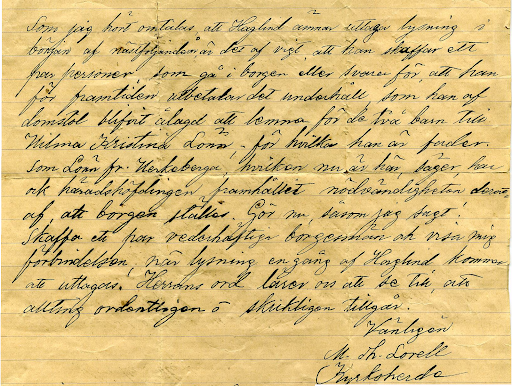 Som jag hört omtalas, att Haglund ämnar uttaga lysning i
början af nästföljande år det af vigt, att han skaffar ett
par personer, som gå i borgen eller svara för att han
för framtiden utbetalar det underhåll, som han af
domstol blifvit ålagd att lemna för de två barn till
Hilma Kristina Lönn, för hvilka han är fader.
Som Lönn fr. Herkeberga, hvilken nu är här, säger, har
ock häradshöfdingen framhållit nödvändigheten deraf
af, att borgen ställes. Gör nu, såsom jag sagt!
Skaffa ett par vederhäftige borgesmän och visa mig
förbindelsen, när lysning en gång af Haglund kommer
att uttagas. Herrans ord lärer oss att se till, att
allting ordentligen o skickligen tillgår.
Vänligen
M. Th. Lorell
Kyrkoherde